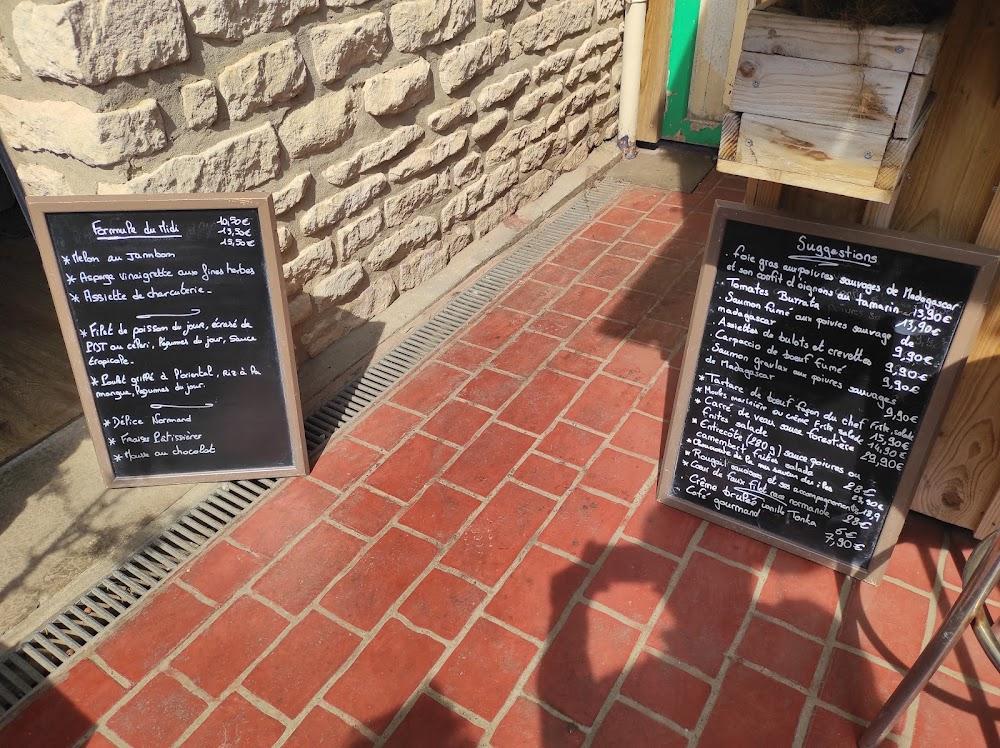 Formule du Midi
10,50€
13,50€
19,50€
* Melon au Jambon
* Asperge vinaigrette aux fines herbes
* Assiette de charcuterie.
* Filet de poisson du jour, écrasé de
PDT au céleri, légumes du jour, sauce
tropicale.
* Poulet griffé à l'oriental, Riz à la
mangue, légumes du jour.
* Délice Normand
* Fraises Pâtissières
* Mousse au chocolat
Suggestions
. foie gras aux poivres sauvages de Madagascar
et son confit d'oignons au tamarin 13,90€
. Tomates Burrata 13,90€
. Saumon fumé aux poivres sauvage de
madagascar 9,90€
. Assiettes de bulots et crevettes 9,90€
. Carpaccio de bœuf fumé 9,90€
. Saumon gravlax aux poivres sauvages
de Madagascar 9,90€
* Tartare de bœuf façon du chef Frite, salade 15,90€
* Moules marinière ou crème frites salade 14,90€
* Carré de veau sauce forestière 29,90€
frites salade
* Entrecôte (280g) sauce poivres ou
camembert frites salade 28€
* de la mer saveur des îles 23,90€
* Rougail saucisses et ses accompagnements 18,9
* Cœur de faux filet race normande 28€
Crème brulée vanille Tonka 6€
Café gourmand 7,90€